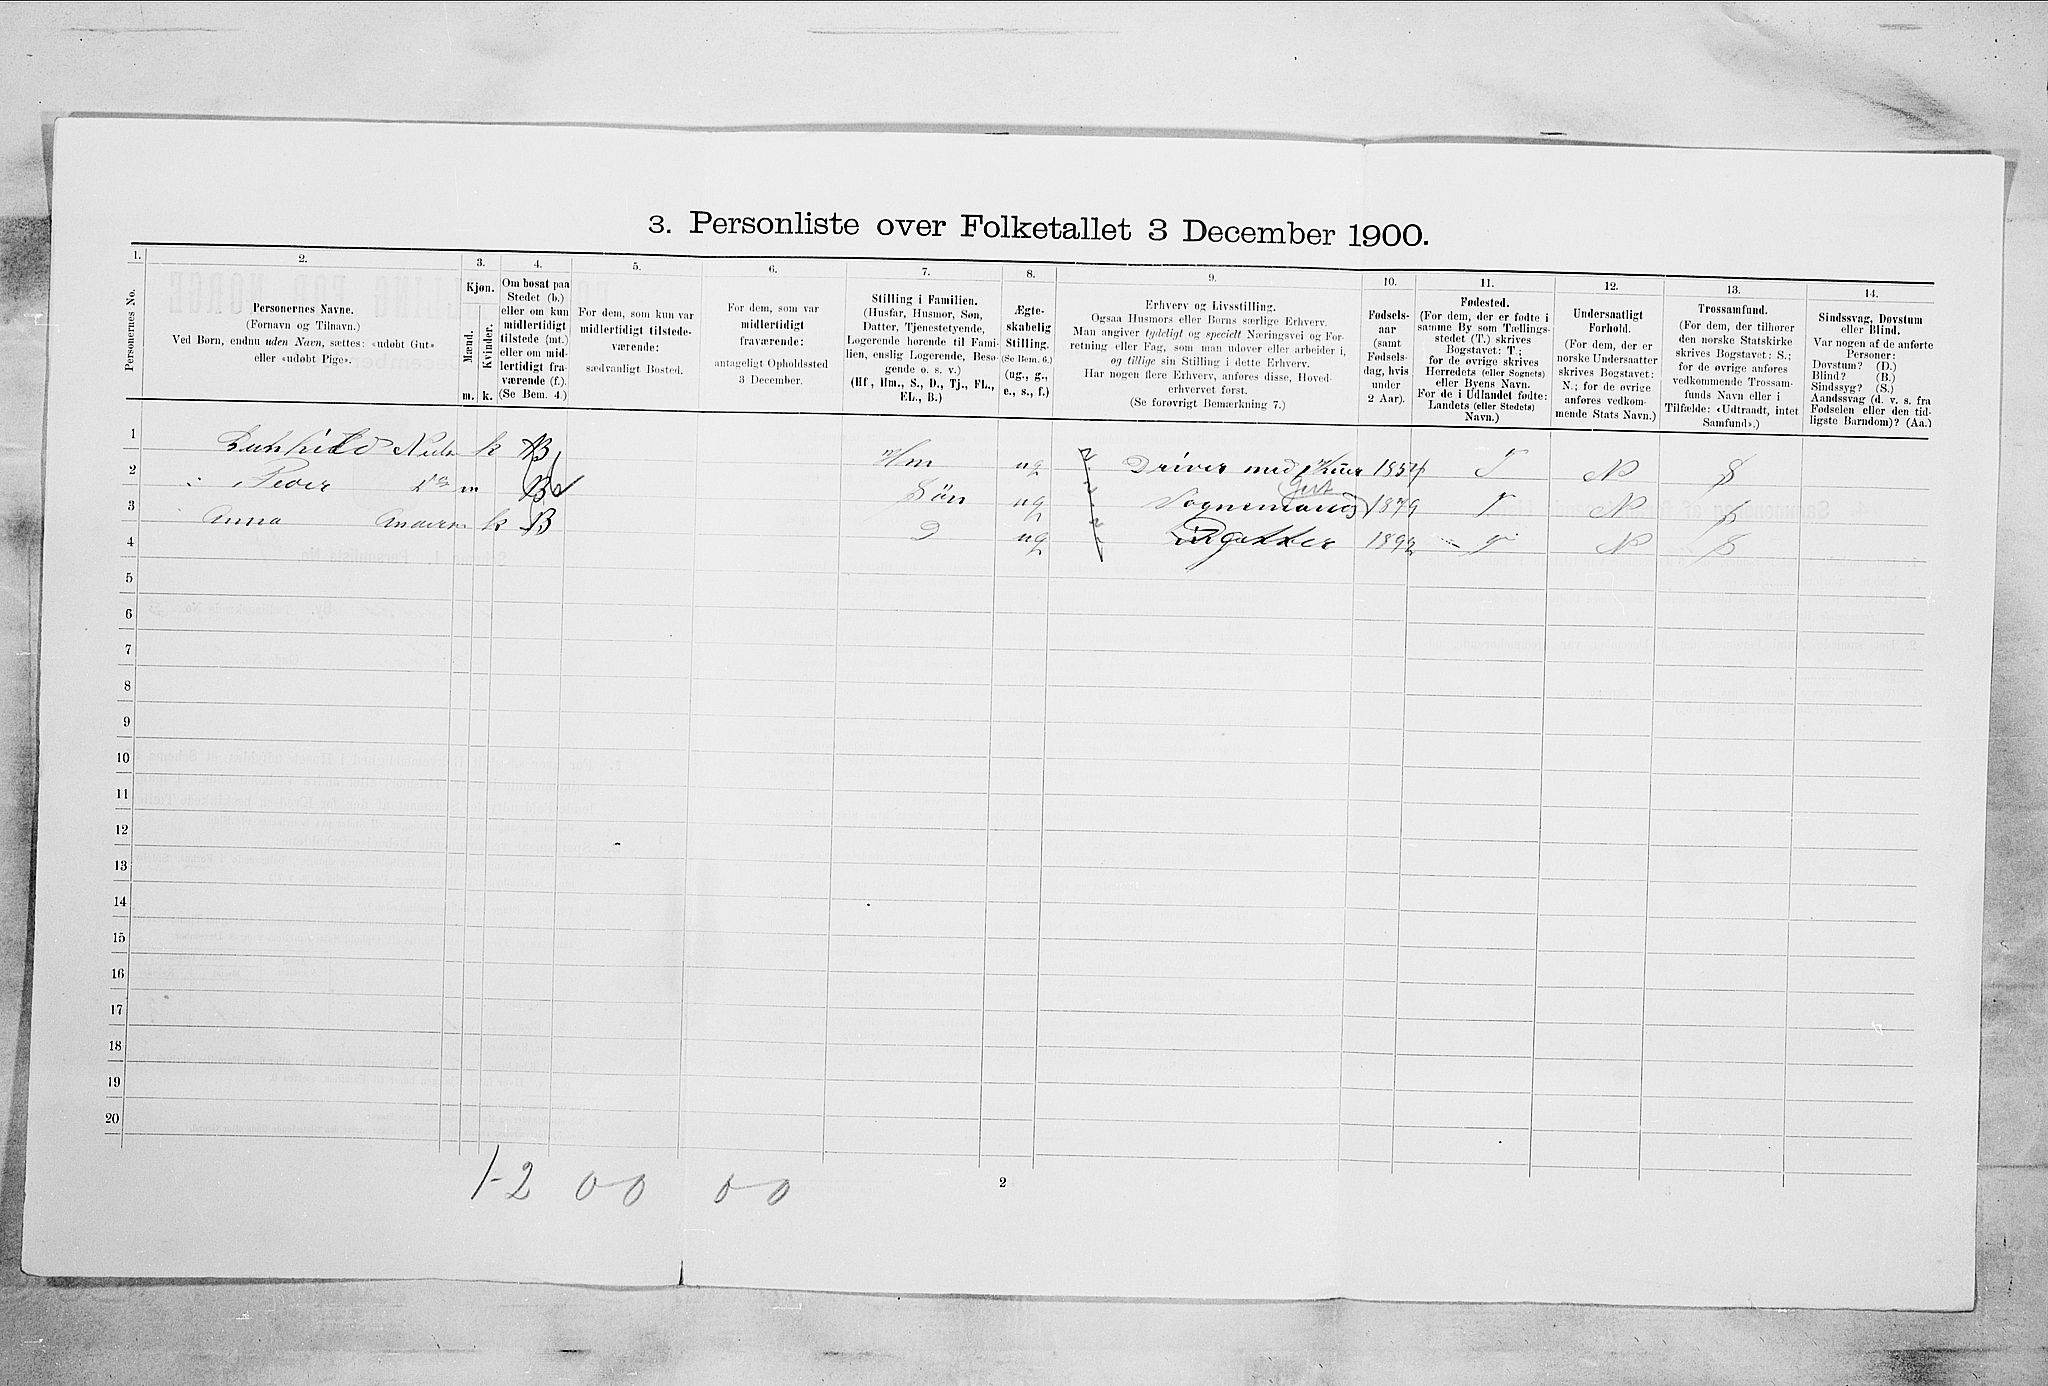 3. Personliste over Folketallet 3 December 1900.
1. 2. 3. 4. 5. 6. 7. 8. 9. 10. 11. 12. 13. 14.
Personernes No.
Personernes Navne.
(Fornavn og Tilnavn.)
Ved Børn, endnu uden Navn, sættes: «udøbt Gut»
eller «udøbt Pige».
Kjøn.
Mænd.
Kvinder.
m. k.
Om bosat paa
Stedet (b.)
eller om kun
midlertidigt
tilstede (mt.)
eller om mid-
lertidigt fra-
værende (f.).
(Se Bem. 4.)
For dem, som kun var
midlertidigt tilstede-
værende:
sædvanligt Bosted.
For dem, som var
midlertidigt
fraværende:
antageligt Opholdssted
3 December.
Stilling i Familien.
(Husfar, Husmor, Søn,
Datter, Tjenestetyende,
Logerende hørende til Fami-
lien, enslig Logerende, Besø-
gende o. s. v.)
(Hf., Hm., S., D., Tj., FL.,
EL., B.)
Ægte-
skabelig
Stilling.
(Se Bem. 6.)
(ug., g.,
e., s., f.)
Erhverv og Livsstilling.
Ogsaa Husmors eller Børns særlige Erhverv.
Man angiver tydeligt og specielt Næringsvei og For-
retning eller Fag, som man udøver eller arbeider i,
og tillige sin Stilling i dette Erhverv.
Har nogen flere Erhverv, anføres disse, Hoved-
erhvervet først.
(Se forøvrigt Bemærkning 7.)
Fødsels-
aar
(samt
Fødsels-
dag, hvis
under
2 Aar).
Fødested.
(For dem, der er fødte i
samme By som Tællings-
stedet (T.) skrives
Bogstavet: T;
for de øvrige skrives
Herredets (eller Sognets)
eller Byens Navn.
For de i Udlandet fødte:
Landets (eller Stedets)
Navn.)
Undersaatligt
Forhold.
(For dem, der er
norske Undersaatter
skrives Bogstavet:
N.; for de øvrige
anføres vedkom-
mende Stats Navn.)
Trossamfund.
(For dem, der tilhører
den norske Statskirke
skrives Bogstavet: S.;
for de øvrige anføres
vedkommende Trossam-
funds Navn eller i
Tilfælde: «Udtraadt, intet
Samfund».)
Sindssvag, Døvstum
eller Blind.
Var nogen af de anførte
Personer:
Døvstum? (D.)
Blind? (B.)
Sindssyg? (S.)
Aandssvag (d. v. s. fra
Fødselen eller den tid-
ligste Barndom)? (Aa.)
1 k B Hm ug Driver med 185 T N S
2 Peder Do m B Søn ug 1879 T N S
3 Anna k B D ug 189 T N S
4
5
6
7
8
9
10
11
12
13
14
15
16
17
18
19
20
1-2 0 0 0 0
2